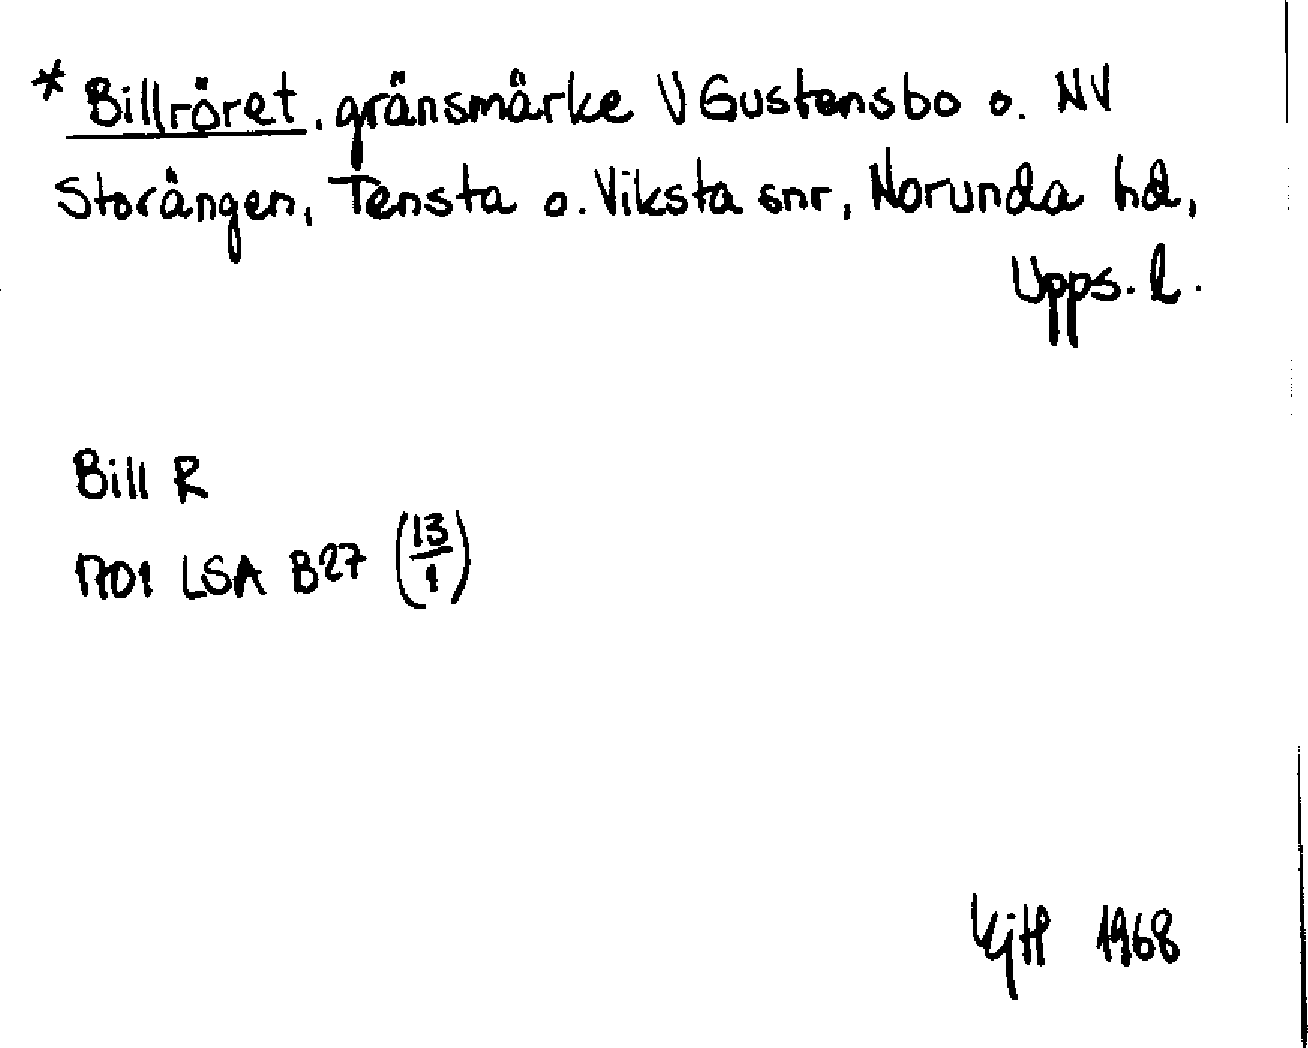 * Billröret, gränsmärke V Gustensbo o. NV
Storängen, Tensta o. Viksta snr, Norunda hd,
Upps. l.
Bill R
1701 LSA B27 (13/1)
1968